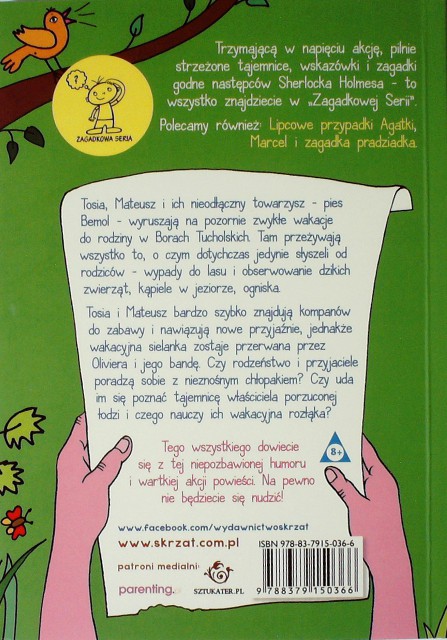 Trzymającą w napięciu akcję, pilnie
strzeżone tajemnice, wskazówki i zagadki
godne następców Sherlocka Holmesa - to
wszystko znajdziecie w „Zagadkowej Serii”.
Polecamy również: Lipcowe przypadki Agatki,
Marcel i zagadka pradziadka.
?
ZAGADKOWA SERIA
Tosia, Mateusz i ich nieodłączny towarzysz - pies
Bemol - wyruszają na pozornie zwykłe wakacje
do rodziny w Borach Tucholskich. Tam przeżywają
wszystko to, o czym dotychczas jedynie słyszeli od
rodziców - wypady do lasu i obserwowanie dzikich
zwierząt, kąpiele w jeziorze, ogniska.
Tosia i Mateusz bardzo szybko znajdują kompanów
do zabawy i nawiązują nowe przyjaźnie, jednakże
wakacyjna sielanka zostaje przerwana przez
Oliviera i jego bandę. Czy rodzeństwo i przyjaciele
poradzą sobie z nieznośnym chłopakiem? Czy uda
im się poznać tajemnicę właściciela porzuconej
łodzi i czego nauczy ich wakacyjna rozłąka?
Tego wszystkiego dowiecie
się z tej niepozbawionej humoru
i wartkiej akcji powieści. Na pewno
nie będziecie się nudzić!
8+
www.facebook.com/wydawnictwoskrzat
www.skrzat.com.pl
patroni medialni:
parenting.
SZTUKATER.PL
ISBN 978-83-7915-036-6
9 788379 150366